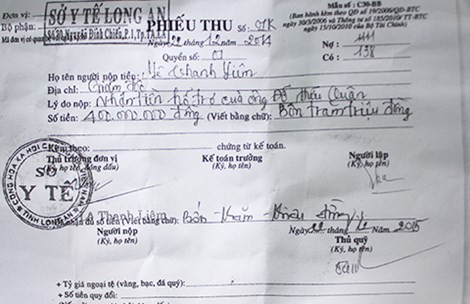 Đơn vị:
SỞ Y TẾ LONG AN
Bộ phận:
Số 70, Nguyễn Đình Chiểu, P.1, Tp.TA.LA
Mã đơn vị
PHIẾU THU
Số: 01K
Ngày 22 tháng 12 năm 2014
Quyển số: 01
Mẫu số : C30-BB
(Ban hành kèm theo QĐ số 19/2006/QĐ-BTC
ngày 30/3/2006 và Thông tư số 185/2010/TT-BTC
ngày 15/11/2010 của Bộ Tài Chính)
Nợ : 1111
Có : 138
Họ tên người nộp tiền: Lê Thanh Liêm
Địa chỉ: Giám đốc
Lý do nộp: Nhận tiền hỗ trợ của ông Đỗ Quân
Số tiền: 400.000.000 đồng (Viết bằng chữ): Bốn trăm triệu đồng
Kèm theo: chứng từ kế toán.
Thủ trưởng đơn vị
(Ký, họ tên, đóng dấu)
Kế toán trưởng
(Ký, họ tên)
Người lập
(Ký, họ tên)
SỞ
Y TẾ
TỈNH LONG AN
Thanh Liêm
nhận đủ số tiền (Viết bằng chữ): Bốn trăm triệu đồng
Người nộp
(Ký, họ tên)
Ngày 22 tháng năm 2015
Thủ quỹ
(Ký, họ tên)
+ Tỷ giá ngoại tệ (vàng, bạc, đá quý):
+ Số tiền quy đổi: